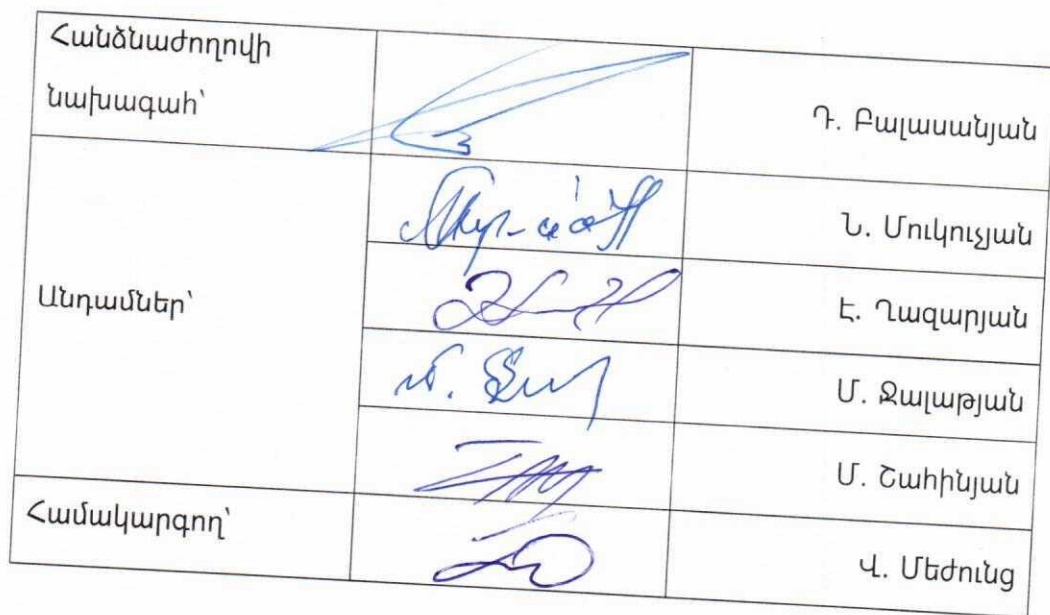 Հանձնաժողովի
նախագահ՝
Դ. Բալասանյան
Ն. Մուկուչյան
Անդամներ՝
Է. Ղազարյան
Մ. Ջալաթյան
Մ. Շահինյան
Համակարգող՝
Վ. Մեժունց